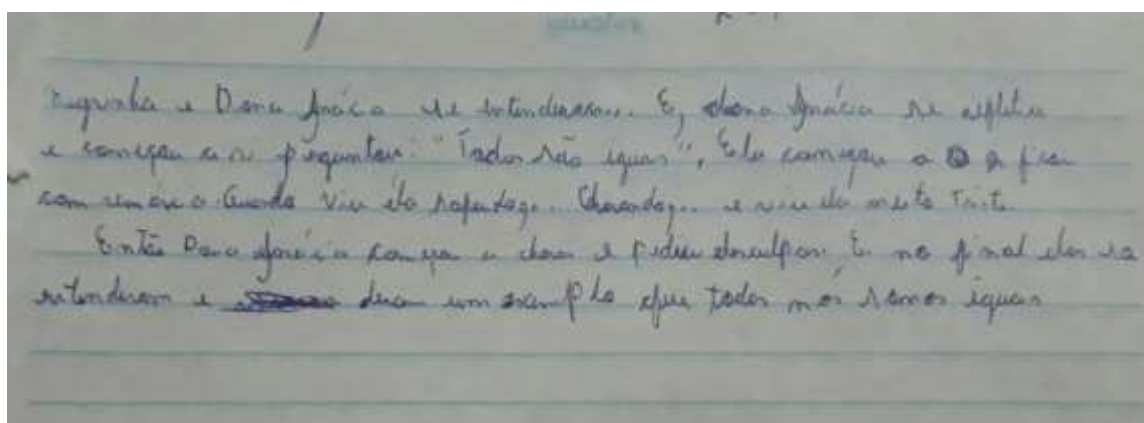 negrinha e Dona Inácia se intenderam... E, dona Inácia se
e começou a si perguntar: "Todos são iguas", Ela começou a a ficar
com remórcio Quando viu ela Chorando... e viu ela muito Triste.
Então Dona Inácia começa a chorar e Pediu desculpas, E no final elas se
intenderam e deram um exemplo que todos nós somos iguas